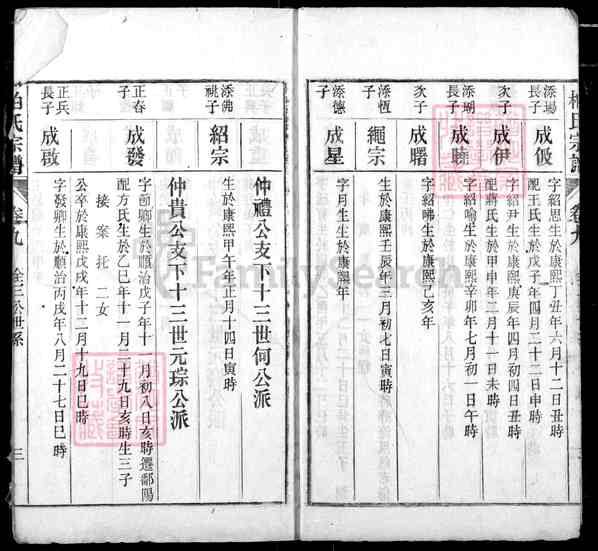 柏氏宗譜
添瑒長子
成伋
字紹思生於康熙丁丑年六月十二日丑時
配王氏生於戊子年四月二十二日申時
次子
成伊
字紹尹生於康熙庚辰年四月初四日丑時
配蔣氏生於甲申年二月十一日未時
添瑚長子
字紹喻生於康熙辛卯年七月初一日午時
次子
成曙
字紹咈生於康熙乙亥年
添恆子
繩宗
生於康熙壬辰年三月初七日寅時
添德子
成星
字月生生於康熙
仲禮公支下十三世何公派
添佛祧子
紹宗
生於康熙甲午年正月十四日寅時
仲貴公支下十三世元琮公派
正春子
成發
字茴卿生於順治戊子年十一月初八日亥時遷鄱陽
配方氏生於乙巳年十一月二十九日亥時生三子
接案托二女
公卒於康熙戊戌年十二月十九日巳時
正兵長子
成啟
字發卿生於順治丙戌年八月二十七日巳時
柏氏宗譜
卷九
三
FamilySearch